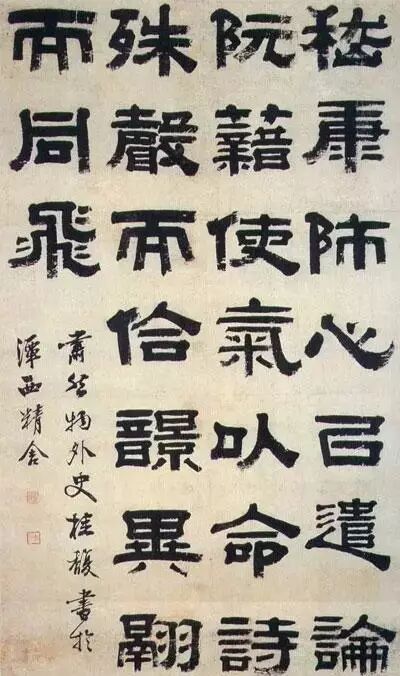 嵇康師心㠯遣論
阮藉使氣㕥命詩
殊聲而佮響異翮
而同飛
肅然物外史桂馥書於
潭西精舍